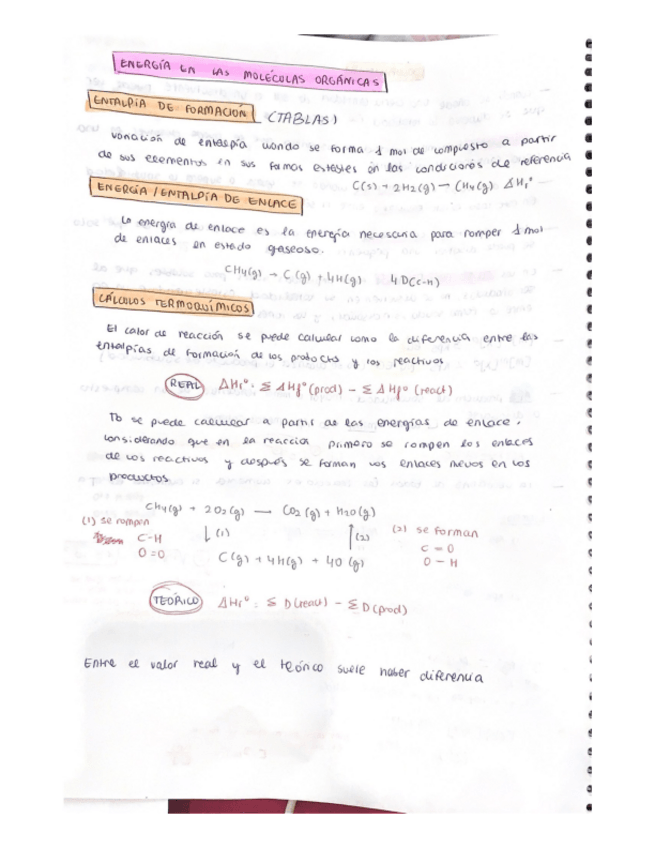 ENERGÍA EN LAS MOLÉCULAS ORGÁNICAS
ENTALPÍA DE FORMACIÓN (TABLAS)
Variación de entalpía cuando se forma 1 mol de compuesto a partir
de sus elementos en sus formas estables en las condiciones de referencia
C(s) + 2H2(g) → CH4(g) ΔHf°
ENERGÍA / ENTALPÍA DE ENLACE
La energía de enlace es la energía necesaria para romper 1 mol
de enlaces en estado gaseoso.
CH4(g) → C(g) + 4H(g) 4 D(C-H)
CÁLCULOS TERMOQUÍMICOS
El calor de reacción se puede calcular como la diferencia entre las
entalpías de formación de los productos y los reactivos
REAL ΔHr° = Σ ΔHf° (prod) - Σ ΔHf° (react)
Tb se puede calcular a partir de las energías de enlace,
considerando que en la reacción primero se rompen los enlaces
de los reactivos y después se forman los enlaces nuevos en los
productos
CH4(g) + 2O2(g) → CO2(g) + H2O(g)
(1) se rompen
C-H
O=O
↓(1)
↑(2)
(2) se forman
C=O
O-H
C(g) + 4H(g) + 4O (g)
TEÓRICO ΔHr° = Σ D(react) - Σ D(prod)
Entre el valor real y el teórico suele haber diferencia